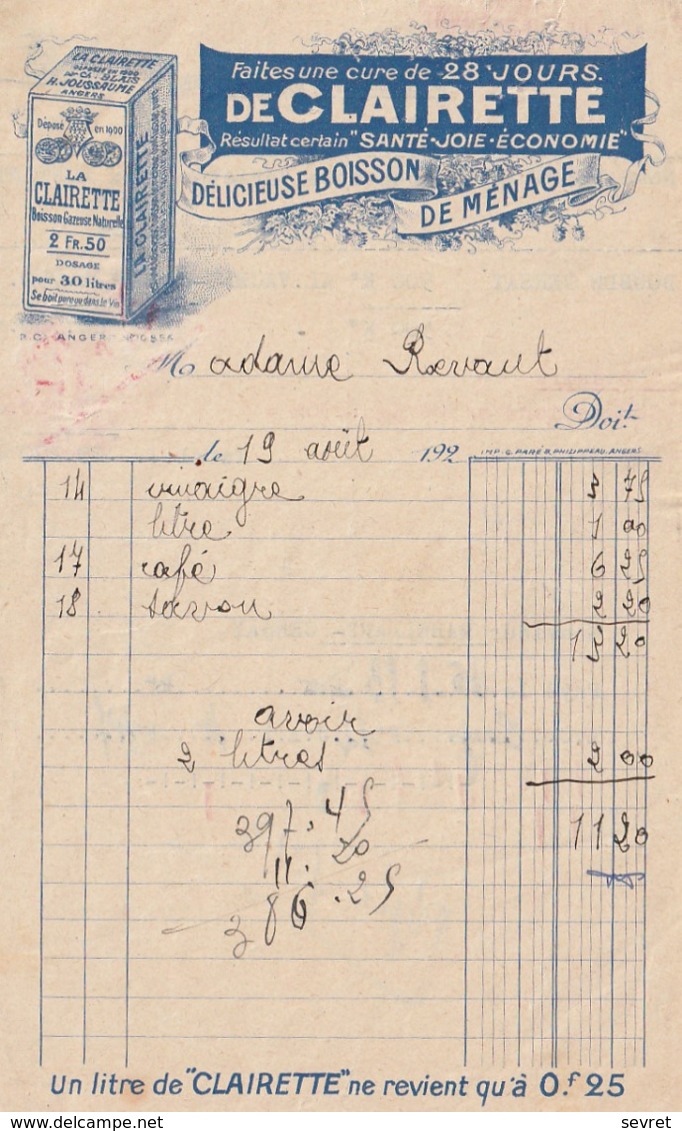 LA CLAIRETTE
H. JOUSSAUME
ANGERS
Déposé en 1900
LA
CLAIRETTE
Boisson Gazeuse Naturelle
2 FR. 50
DOSAGE
pour 30 litres
Se boit pure ou dans le Vin
LA CLAIRETTE
Faites une cure de 28 JOURS.
DE CLAIRETTE
Résultat certain "SANTÉ-JOIE-ÉCONOMIE"
DÉLICIEUSE BOISSON
DE MÉNAGE
R.C. ANGERS
Madame Revaut
Doit
le 19 août 192
IMP. G. PARÉ & PHILIPPEAU, ANGERS
14 vinaigre 3 75
litre 1 00
17 café 6 25
18 savon 2 20
13 20
avoir
2 litres 2 00
11 20
397.45
11.20
386.25
Un litre de "CLAIRETTE" ne revient qu'à 0.f 25
sevret